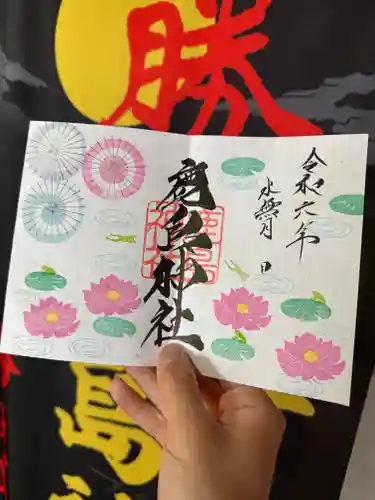 勝
令和六年
水無月 日
鹿島神社
鹿島神社
島